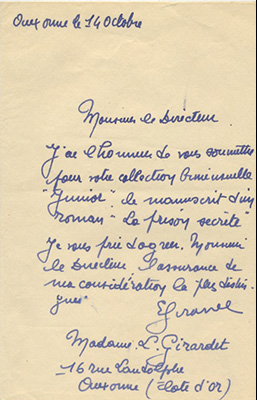 Auxonne le 14 Octobre
Monsieur le Directeur
J'ai l'honneur de vous soumettre
pour votre collection bimensuelle
"Junior" le manuscrit d'un
roman "La prison secrète"
Je vous prie d'agréer, Monsieur
le Directeur l'assurance de
ma considération la plus distin-
guée
Madame L. Girardet
16 rue Landolphe
Auxonne (Côte d'or)